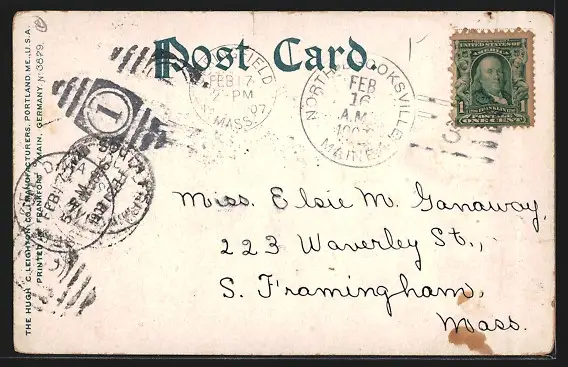 Post Card.
THE HUGH C. LEIGHTON CO., MANUFACTURERS, PORTLAND, ME., U.S.A.
PRINTED IN FRANKFORT MAIN, GERMANY. No 3829.
FEB 17
7-PM
07
MASS.
NORTH BROOKSVILLE
FEB
16
A.M.
MAINE
UNITED STATES OF AMERICA
1 FRANKLIN 1
POSTAGE
ONE CENT
1
FEB 17
Miss. Elsie M. Ganaway,
223 Waverley St.,
S. Framingham,
Mass.